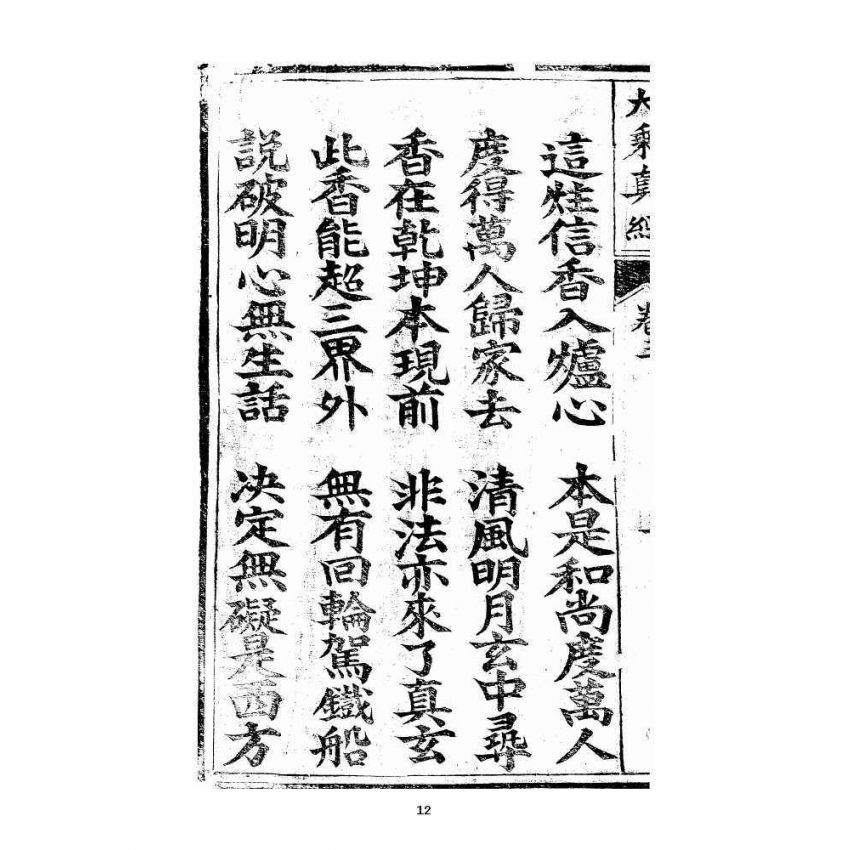 大乘真經 卷
這炷信香入爐心 本是和尚度萬人
度得萬人歸家去 清風明月玄中尋
香在乾坤本現前 非法亦來了真玄
此香能超三界外 無有回輪駕鐵船
説破明心無生話 决定無礙是西方
12